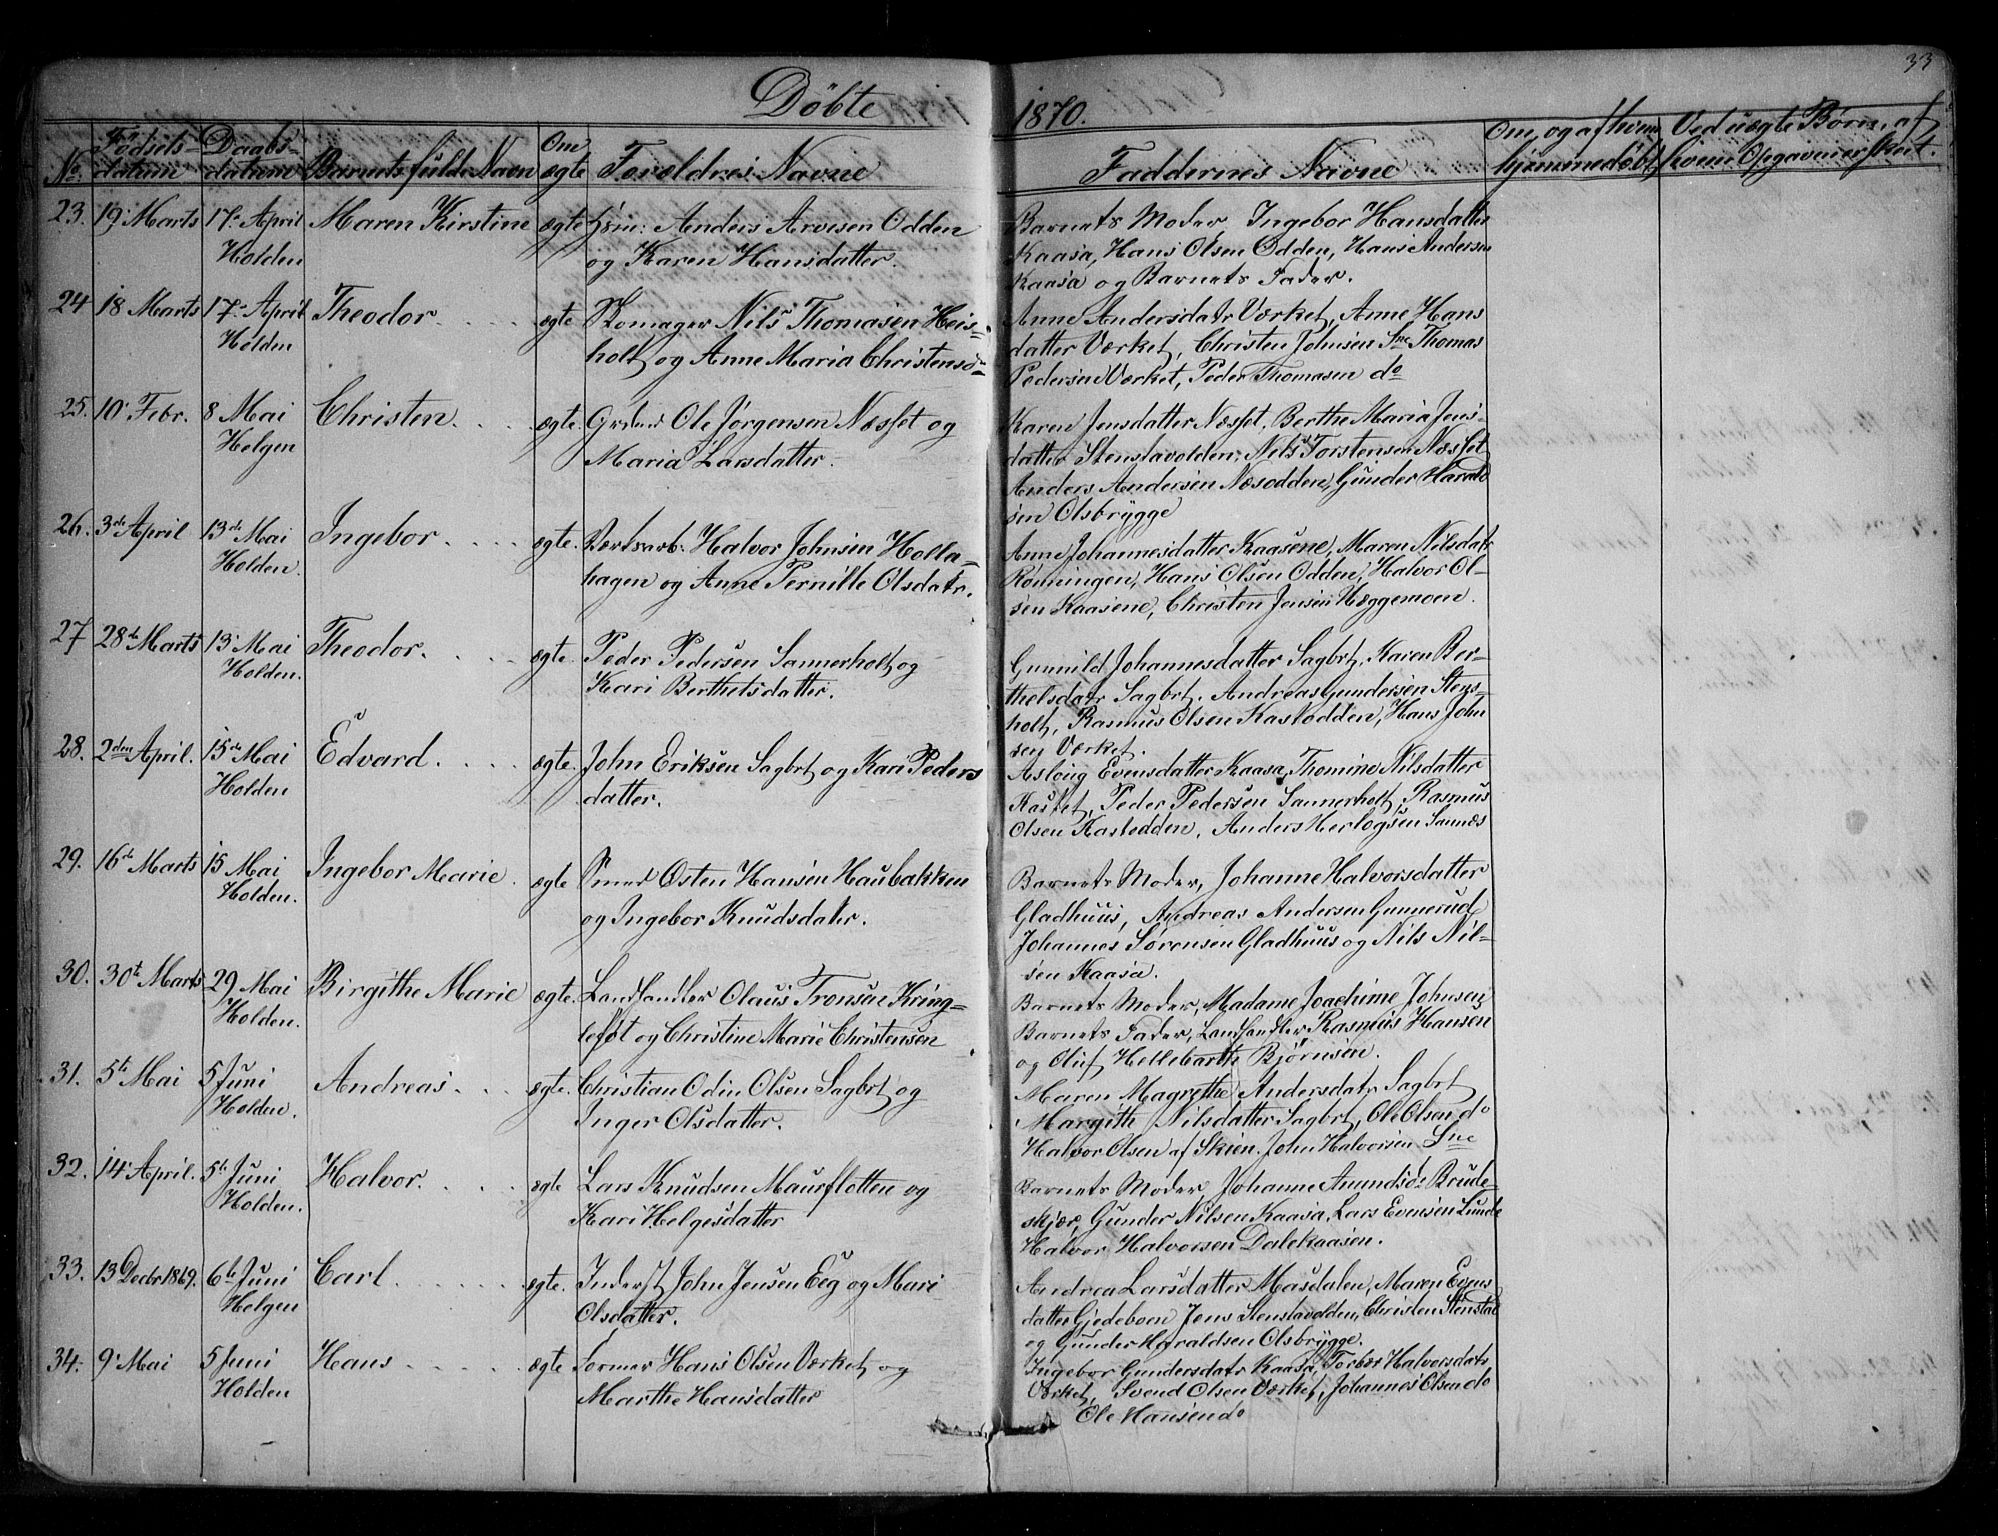 33
Døbte 1870.
No. Fødsels-datum Daabs-datum Barnets fulde Navn Om ægte Forældres Navne Faddernes Navne Om, og af hvem hjemmedøbt Ved uægte Børn, af hvem Opgaven er skeet.
23. 19 Marts 17de April Maren Kirstine ægte Anders Arvesen Odden
Holden og Karen Hansdatter.
Barnets Moder, Ingebor Hansdatter
Kaasa, Hans Olsen Odden, Hans Andersen
Kaasa og Barnets Fader.
24 18 Marts 17de April Theodor ægte Skomager Nils Thomasen Heis-
Holden holt og Anne Maria Christensd
Anne Andersdatr Værket, Anne Hans
datter Værket, Christen Johnsen Sne Thomas
Pedersen Værket, Peder Thomasen do
25. 10 Febr. 8 Mai Christen. ægte. Ole Jørgensen Næsset og
Helgen Maria Larsdatter.
Karen Jensdatter Næsset, Berthe Maria Jens-
datter Stenstavolden, Nils Torstensen Næsset
Anders Andersen Næsodden, Gunder Harald
sen Olsbrygge
26. 3de April 13de Mai Ingebor ægte. Værksarb: Halvor Johnsen Holla-
Holden. hagen og Anne Pernille Olsdatr.
Anne Johannesdatter Kaasene, Maren Nilsdatr
Rønningen, Hans Olsen Odden, Halvor Ol-
sen Kaasene, Christen Jensen Hæggemoen.
27 28de Marts 13 Mai Theodor. ægte. Peder Pedersen Sannerholt og
Holden. Kari Berthelsdatter.
Gunnild Johannesdatter Sagbrt, Karen Ber-
thelsdatr Sagbrt. Andreas Gundersen Stens-
holt, Rasmus Olsen Kastodden, Hans John
sen Værket.
28. 2den April. 15de Mai Edvard. ægte. John Eriksen Sagbrt og Kari Peders
Holden datter.
Aslaug Evensdatter Kaasa, Thomine Nilsdatter
Kastet, Peder Pedersen Sannerholt, Rasmus
Olsen Kastodden, Anders Herlogsen Sannæs
29. 16de Marts 15 Mai Ingebor Marie. ægte Smed Østen Hansen Haubakken
Holden. og Ingebor Knudsdater.
Barnets Moder, Johanne Halvorsdatter
Gladhuus, Andreas Andersen Gunnerud
Johannes Sørensen Gladhuus og Nils Nil-
sen Kaasa.
30. 30t Marts 29 Mai Birgithe Marie ægte. Landhandler Olaus Tronsen Kring-
Holden. lefot og Christine Marie Christensen
Barnets Moder, Madame Joachime Johnsen,
Barnets Fader, Landhandler Rasmus Hansen
og Oluf Hellebarth Bjørnsen.
31. 5te Mai 5 Juni Andreas. ægte. Christian Odin Olsen Sagbrt og
Holden. Inger Olsdatter.
Maren Magrethe Andersdatr Sagbrt
Margith Nilsdatter Sagbrt, Ole Olsen do
Halvor Olsen af Skien. John Halvorsen Sne
32. 14 April. 5te Juni Halvor. ægte Lars Knudsen Maurflotten og
Holden. Kari Helgesdatter
Barnets Moder, Johanne Amundsd Brude-
skjær, Gunder Nilsen Kaasa, Lars Evensen Lunde
Halvor Halvorsen Dalekaasen.
33. 13 Decbr 1869. 6te Juni Carl. ægte. Inderst John Jensen Eeg og Mari
Helgen Olsdatter.
Andrea Larsdatter Masdalen, Maren Evens
datter Gjedeboen Jens Stenstavolden, Christen Stenstad
og Gunder Haraldsen Olsbrygge.
34. 9 Mai 5 Juni Hans ægte Former Hans Olsen Værket og
Holden Marthe Hansdatter
Ingebor Gundersdatr Kaasa, Torbor Halvorsdatr
Værket, Svend Olsen Værket, Johannes Olsen do
Ole Hansen do